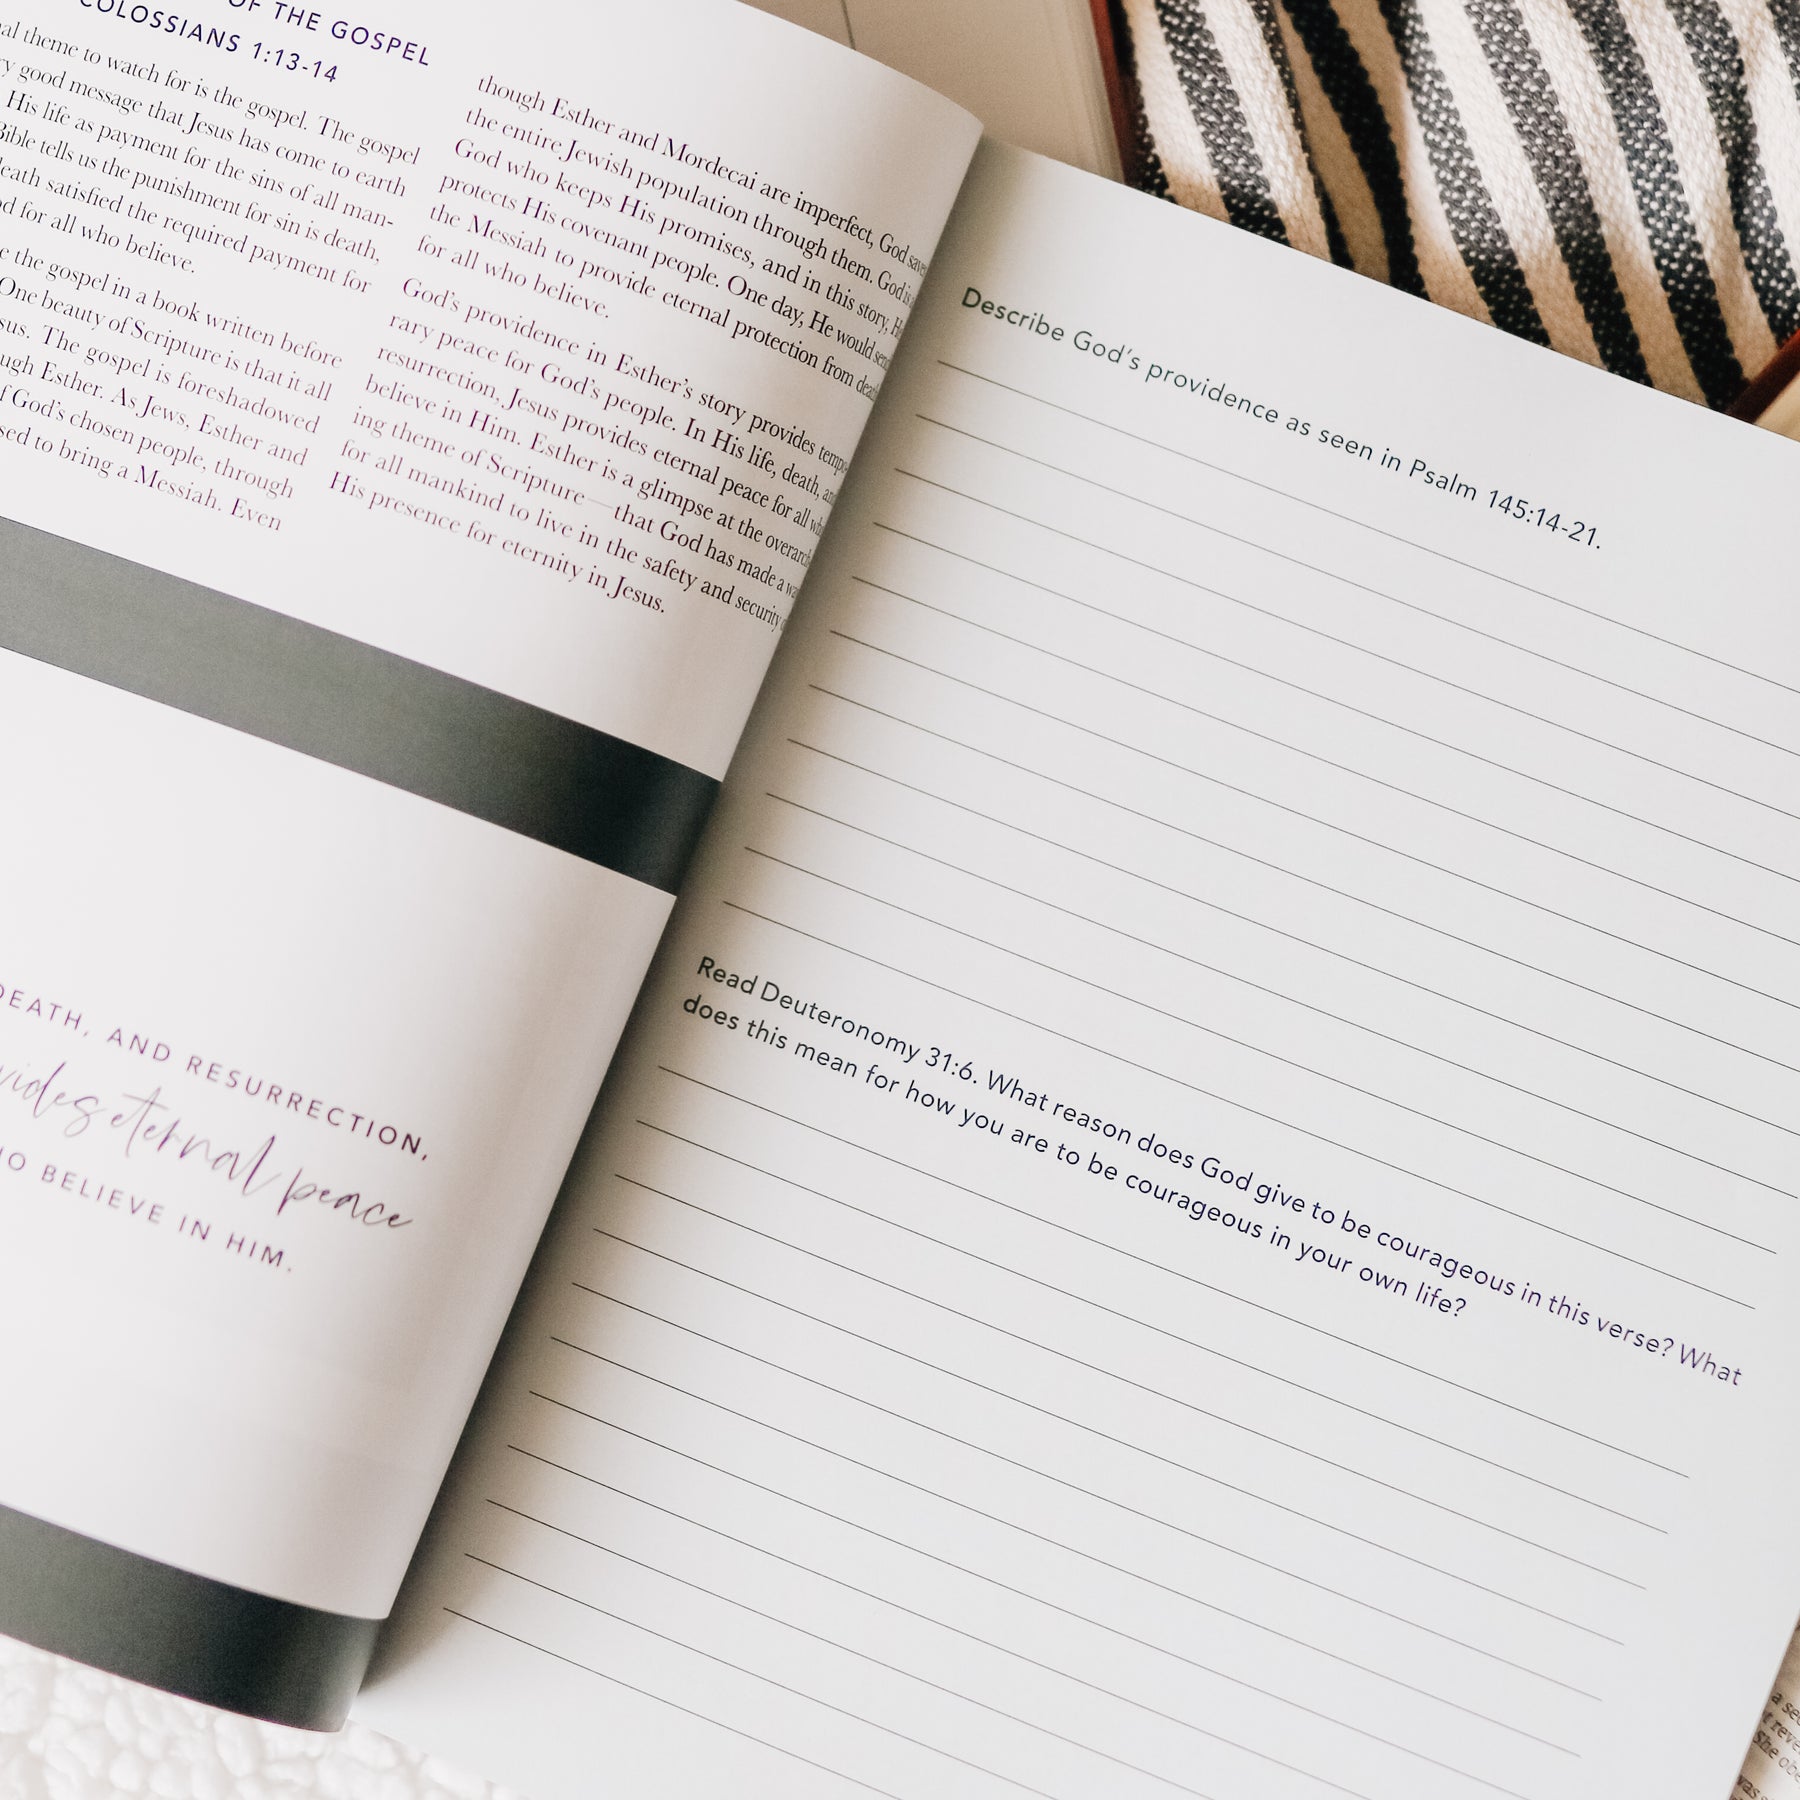 OF THE GOSPEL
COLOSSIANS 1:13-14
theme to watch for is the gospel. The gospel
good message that Jesus has come to earth
His life as payment for the sins of all man-
Bible tells us the punishment for sin is death,
satisfied the required payment for
for all who believe.
the gospel in a book written before
One beauty of Scripture is that it all
The gospel is foreshadowed
Esther. As Jews, Esther and
God's chosen people, through
to bring a Messiah. Even
though Esther and Mordecai are imperfect, God
the entire Jewish population through them. God is
God who keeps His promises, and in this story,
protects His covenant people. One day, He would send
the Messiah to provide eternal protection from death
for all who believe.
God's providence in Esther's story provides tempo-
rary peace for God's people. In His life, death, and
resurrection, Jesus provides eternal peace for all
believe in Him. Esther is a glimpse at the overarch-
ing theme of Scripture—that God has made a
for all mankind to live in the safety and security
His presence for eternity in Jesus.
DEATH, AND RESURRECTION,
eternal peace
BELIEVE IN HIM.
Describe God's providence as seen in Psalm 145:14-21.
Read Deuteronomy 31:6. What reason does God give to be courageous in this verse? What
does this mean for how you are to be courageous in your own life?